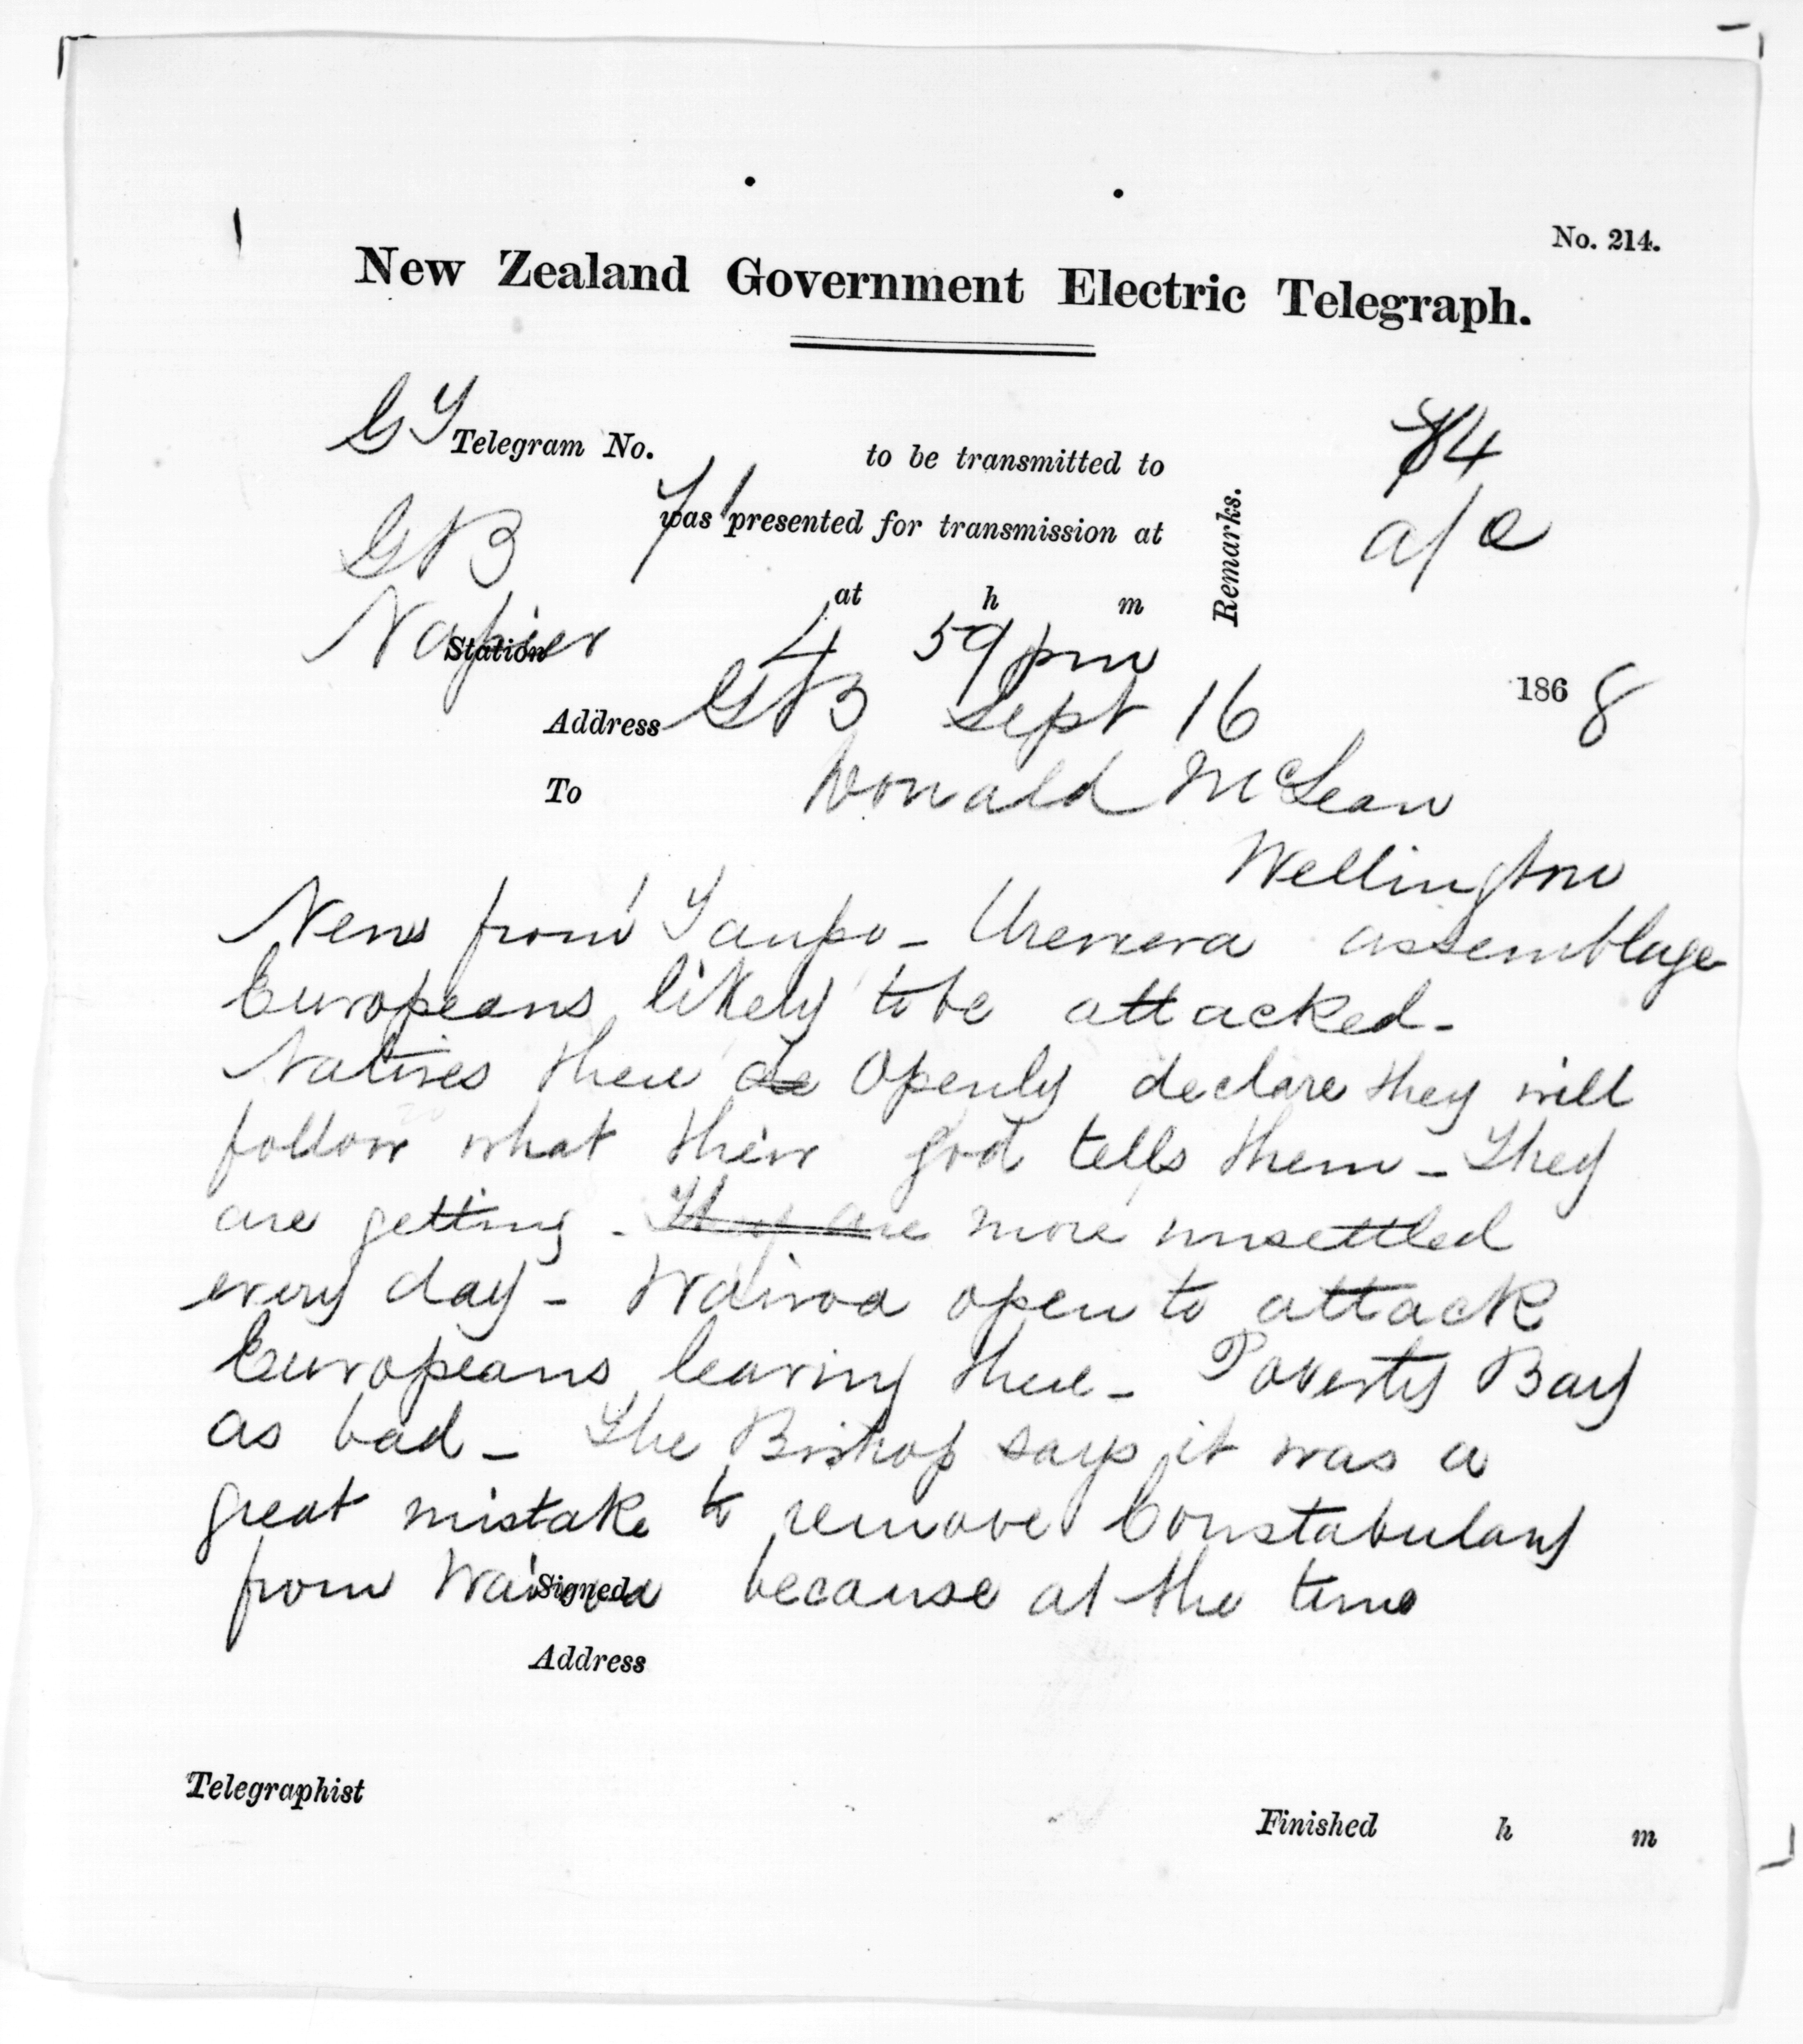 No. 214.
New Zealand Government Electric Telegraph.
GY Telegram No. to be transmitted to 84
GNB 71 was presented for transmission at Remarks. a/c
at h m
Napier Station 4 59 pm
Address GNB Sept 16 1868
To Donald McLean
Wellington
News from Taupo - Urewera assemblage
Europeans likely to be attacked -
Natives there de openly declare they will
follow what their god tells them - They
are getting - They are more unsettled
every day - Wairoa open to attack
Europeans leaving there - Poverty Bay
as bad - The Bishop says it was a
great mistake to remove Constabulary
from Wairoa Signed because at the time
Address
Telegraphist
Finished h m